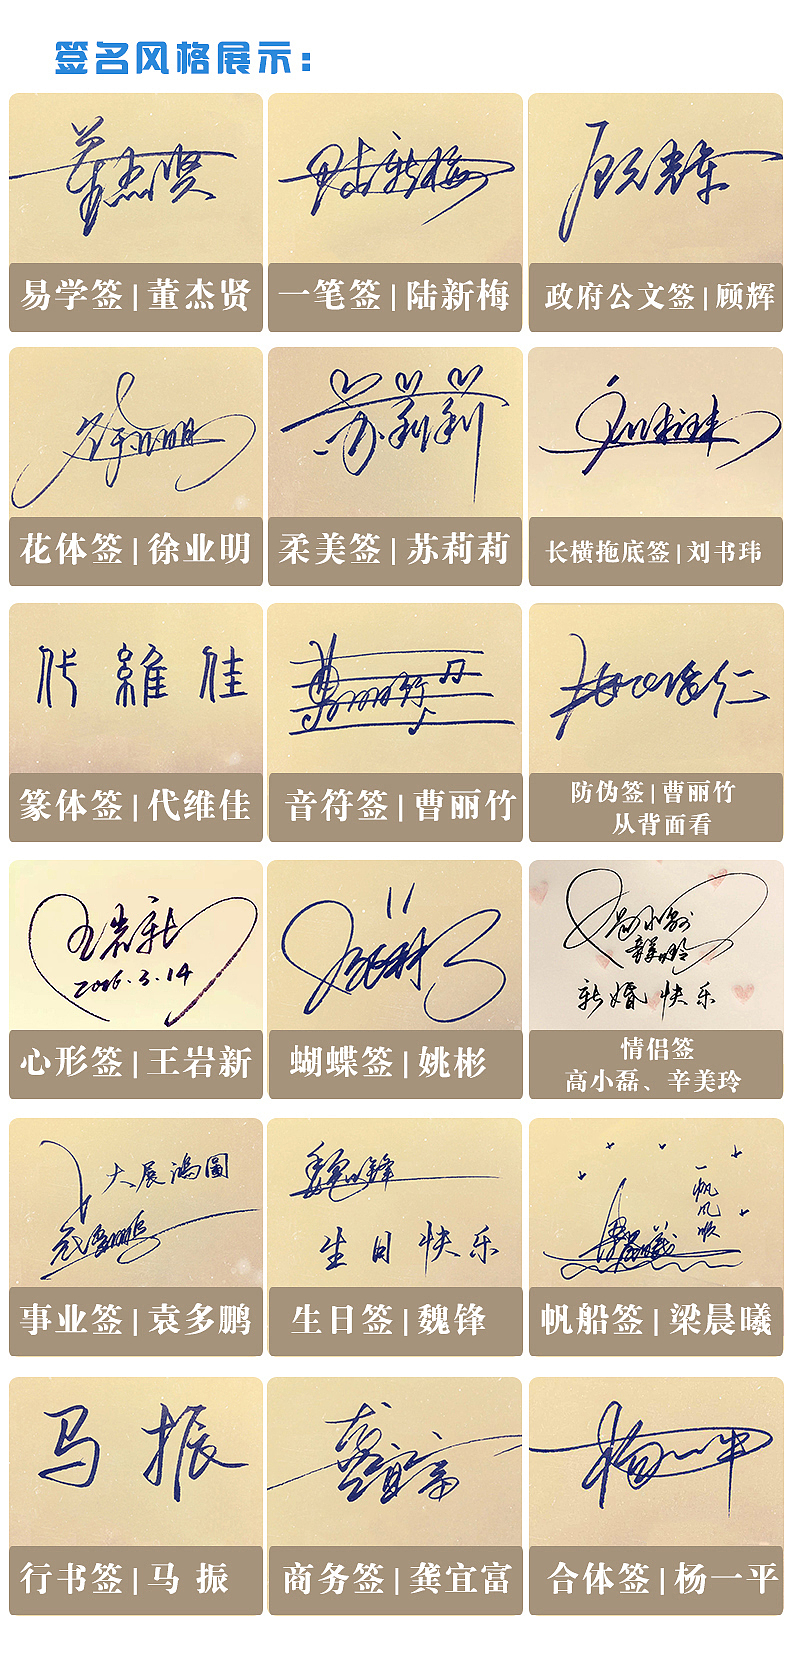 签名风格展示：
董杰贤
陆新梅
顾辉
易学签|董杰贤
一笔签|陆新梅
政府公文签|顾辉
徐业明
苏莉莉
刘书玮
花体签|徐业明
柔美签|苏莉莉
长横拖底签|刘书玮
代維佳
曹丽竹
篆体签|代维佳
音符签|曹丽竹
防伪签|曹丽竹
从背面看
王岩新
2016.3.14
姚彬
高小磊
辛美玲
新婚快乐
心形签|王岩新
蝴蝶签|姚彬
情侣签
高小磊、辛美玲
大展鸿圖
袁多鹏
魏锋
生日快乐
一帆风顺
梁晨曦
事业签|袁多鹏
生日签|魏锋
帆船签|梁晨曦
马振
龚宜富
杨一平
行书签|马 振
商务签|龚宜富
合体签|杨一平